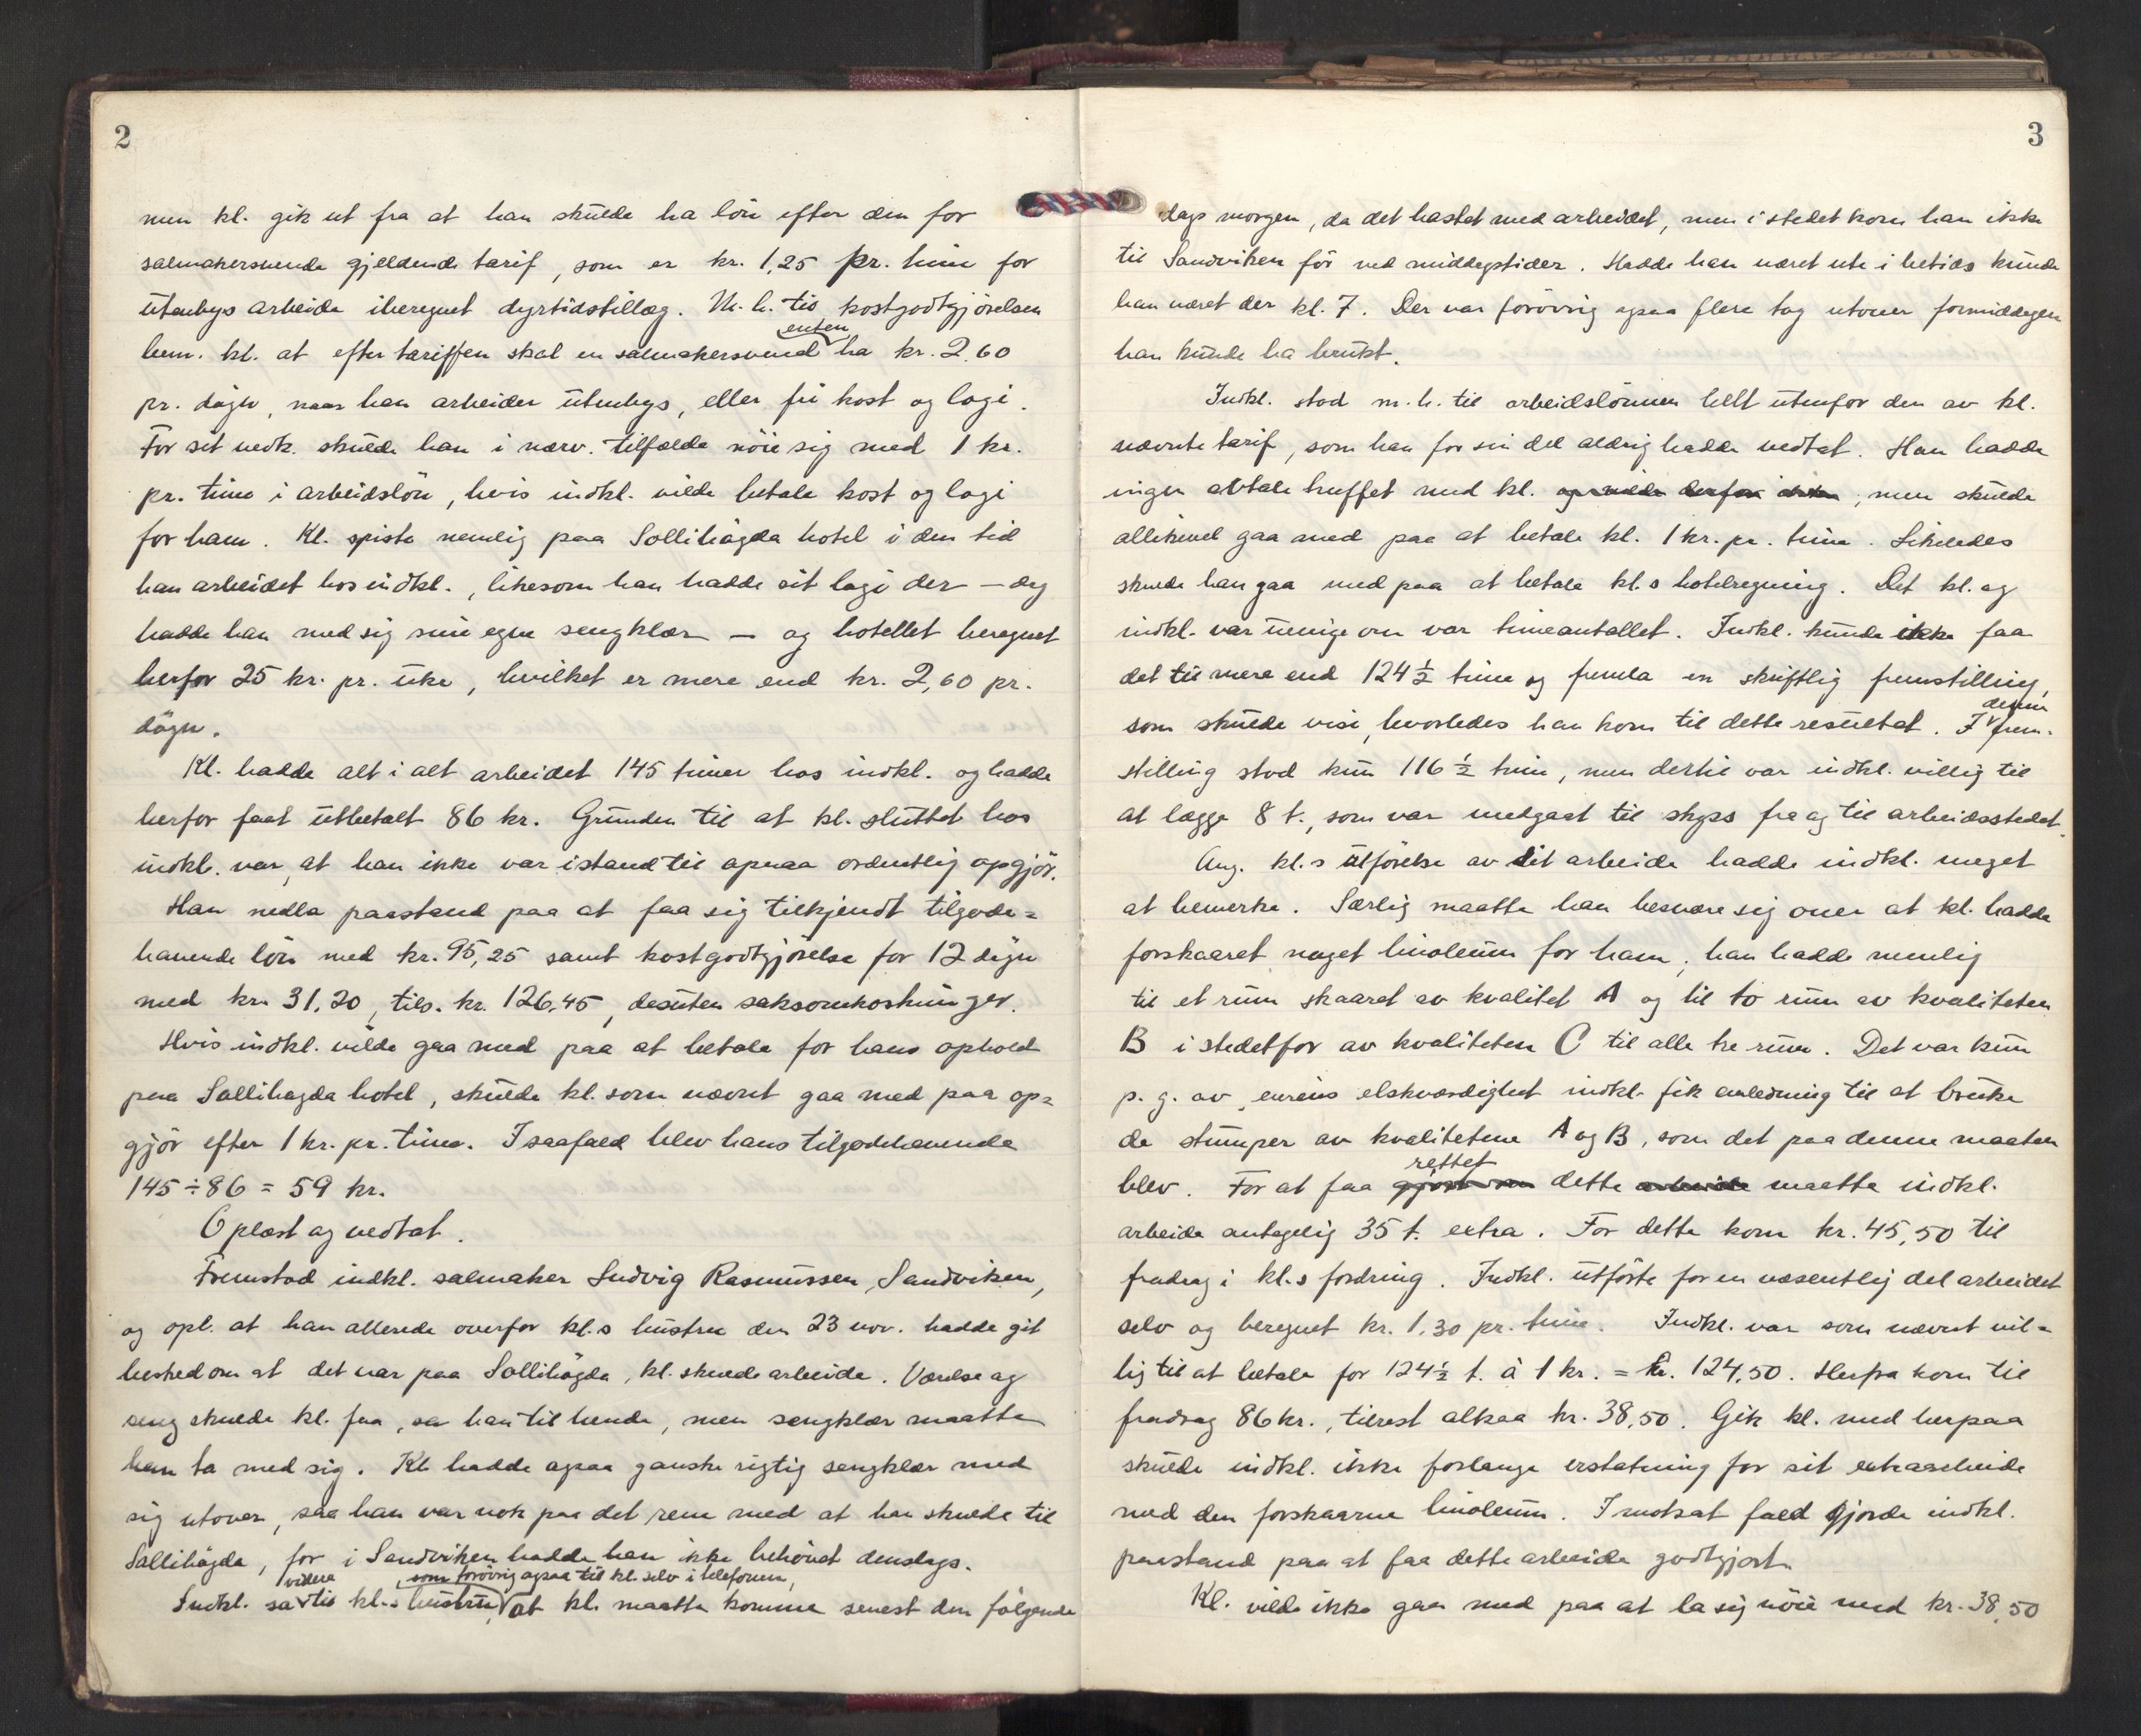 2
men kl. gik ut fra at han skulde ha lön efter den for
salmakersvende gjeldende tarif, som er kr. 1,25 pr. time for
utenbys arbeide iberegnet dyrtidstillæg. M. h. til kostgodtgjörelsen
bem. kl. at efter tariffen skal en salmakersvend enten ha kr. 2.60
pr. dögn, naar han arbeider utenbys, eller fri kost og logi.
For sit vedk. skulde han i nærv. tilfælde nöie sig med 1 kr.
pr. time i arbeidslön, hvis indkl. vilde betale kost og logi
for ham. Kl. spiste nemlig paa Sollihögda hotel i den tid
han arbeidet hos indkl., likesom han hadde sit logi der – dog
hadde han med sig sine egne sengklær – og hotellet beregnet
herfor 25 kr. pr. uke, hvilket er mere end kr. 2,60 pr.
dögn.
Kl. hadde alt i alt arbeidet 145 timer hos indkl. og hadde
herfor faat utbetalt 86 kr. Grunden til at kl. sluttet hos
indkl. var, at han ikke var istand til opnaa ordentlig opgjör.
Han nedla paastand paa at faa sig tilkjendt tilgode-
havende lön med kr. 95,25 samt kostgodtgjörelse for 12 dögn
med kr. 31,20, tils. kr. 126,45, desuten saksomkostninger.
Hvis indkl. vilde gaa med paa at betale for hans ophold
paa Sollihögda hotel, skulde kl. som nævnt gaa med paa op-
gjör efter 1 kr. pr. time. I saafald blev hans tilgodehavende
145 ÷ 86 = 59 kr.
Oplæst og vedtat.
Fremstod indkl. salmaker Ludvig Rasmussen, Sandviken,
og opl. at han allerede overfor kl.s hustru den 23 nov. hadde git
besked om at det var paa Sollihögda, kl. skulde arbeide. Værelse og
seng skulde kl. faa, sa han til hende, men sengklær maatte
han ta med sig. Kl. hadde ogsaa ganske rigtig sengklær med
sig utover, saa han var nok paa det rene med at han skulde til
Sollihögda, for i Sandviken hadde han ikke behövet denslags.
videre som forövrig ogsaa til kl. selv i telefonen,
Indkl. sa til kl.s hustru, at kl. maatte komme senest den fölgende
3
dags morgen, da det hastet med arbeidet, men i stedet kom han ikke
til Sandviken för ved middagstider. Hadde han været ute i betids kunde
han været der kl. 7. Der var forövrig ogsaa flere tog utover formiddagen
han kunde ha brukt.
Indkl. stod m. h. til arbeidslönnen helt utenfor den av kl.
nævnte tarif, som han for sin del aldrig hadde vedtat. Han hadde
ingen avtale truffet med kl. og vilde derfor ikke, men skulde
allikevel gaa med paa at betale kl. 1 kr. pr. time. Likeledes
skulde han gaa med paa at betale kl.s hotelregning. Det kl. og
indkl. var uenige om var timeantallet. Indkl. kunde ikke faa
det til mere end 124 ½ time og fremla en skriftlig fremstilling,
som skulde vise, hvorledes han kom til dette resultat. I denne frem-
stilling stod kun 116 ½ time, men dertil var indkl. villig til
at lægge 8 t., som var medgaat til skyss fra og til arbeidsstedet.
Ang. kl.s utförelse av sit arbeide hadde indkl. meget
at bemerke. Særlig maatte han besvære sig over at kl. hadde
forskaaret noget linoleum for ham; han hadde nemlig
til et rum skaaret av kvalitet A og til to rum av kvaliteten
B i stedetfor av kvaliteten C til alle tre rum. Det var kun
p. g. av eierens elskværdighet indkl. fik anledning til at bruke
de stumper av kvalitetene A og B, som det paa denne maaten
rettet
blev. For at faa gjort om dette arbeide maatte indkl.
arbeide antagelig 35 t. extra. For dette kom kr. 45,50 til
fradrag i kl.s fordring. Indkl. utförte for en væsentlig del arbeidet
selv og beregnet kr. 1,30 pr. time. Indkl. var som nævnt vil-
lig til at betale for 124½ t. à 1 kr. = kr. 124,50. Herfra kom til
fradrag 86 kr., tilrest altsaa kr. 38,50. Gik kl. med herpaa
skulde indkl. ikke forlange erstatning for sit extraarbeide
med den forskaarne linoleum. I motsat fald gjorde indkl.
paastand paa at faa dette arbeide godtgjort.
Kl. vilde ikke gaa med paa at la sig nöie med kr. 38,50